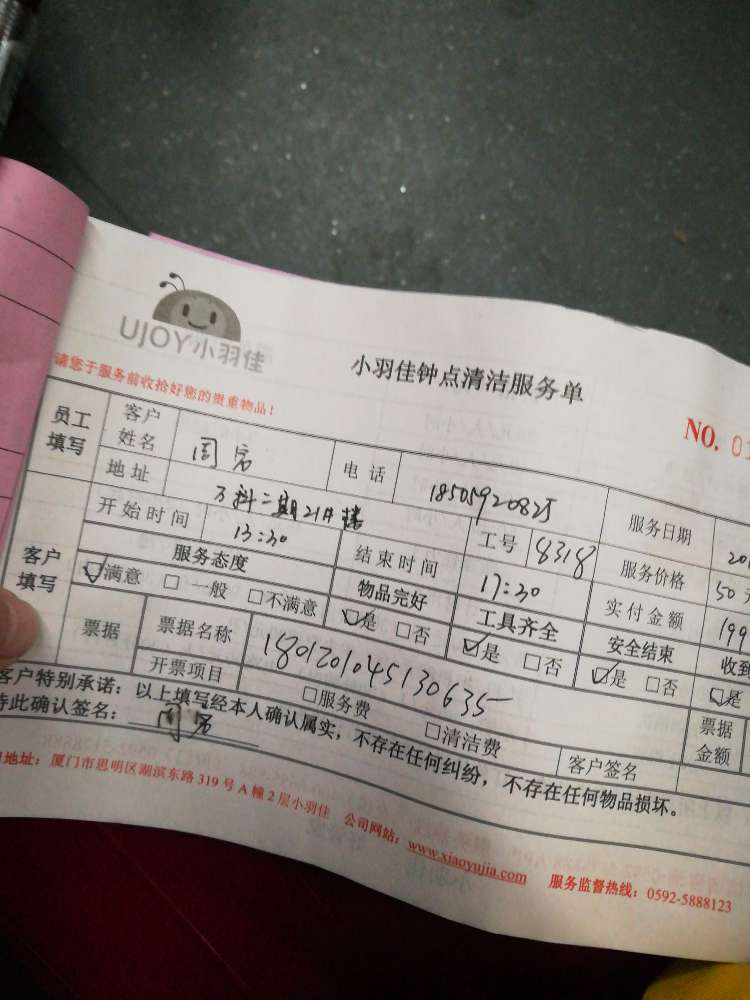 UJOY小羽佳
小羽佳钟点清洁服务单
请您于服务前收拾好您的贵重物品!
NO. 0
员工填写 客户姓名 周 电话 18505920825 服务日期 201
地址 万科二期21#楼 工号 8318 服务价格 50元
开始时间 13:30 结束时间 17:30 实付金额 199
客户填写 服务态度 物品完好 工具齐全 安全结束 收到
☑满意 □一般 □不满意 ☑是 □否 ☑是 □否 ☑是 □否 ☑是
票据 票据名称 1801201045130635 票据金额
开票项目 □服务费 □清洁费 客户签名
客户特别承诺:以上填写经本人确认属实,不存在任何纠纷,不存在任何物品损坏。
特此确认签名: 周
地址:厦门市思明区湖滨东路319号A幢2层小羽佳 公司网站:www.xiaoyujia.com 服务监督热线:0592-5888123